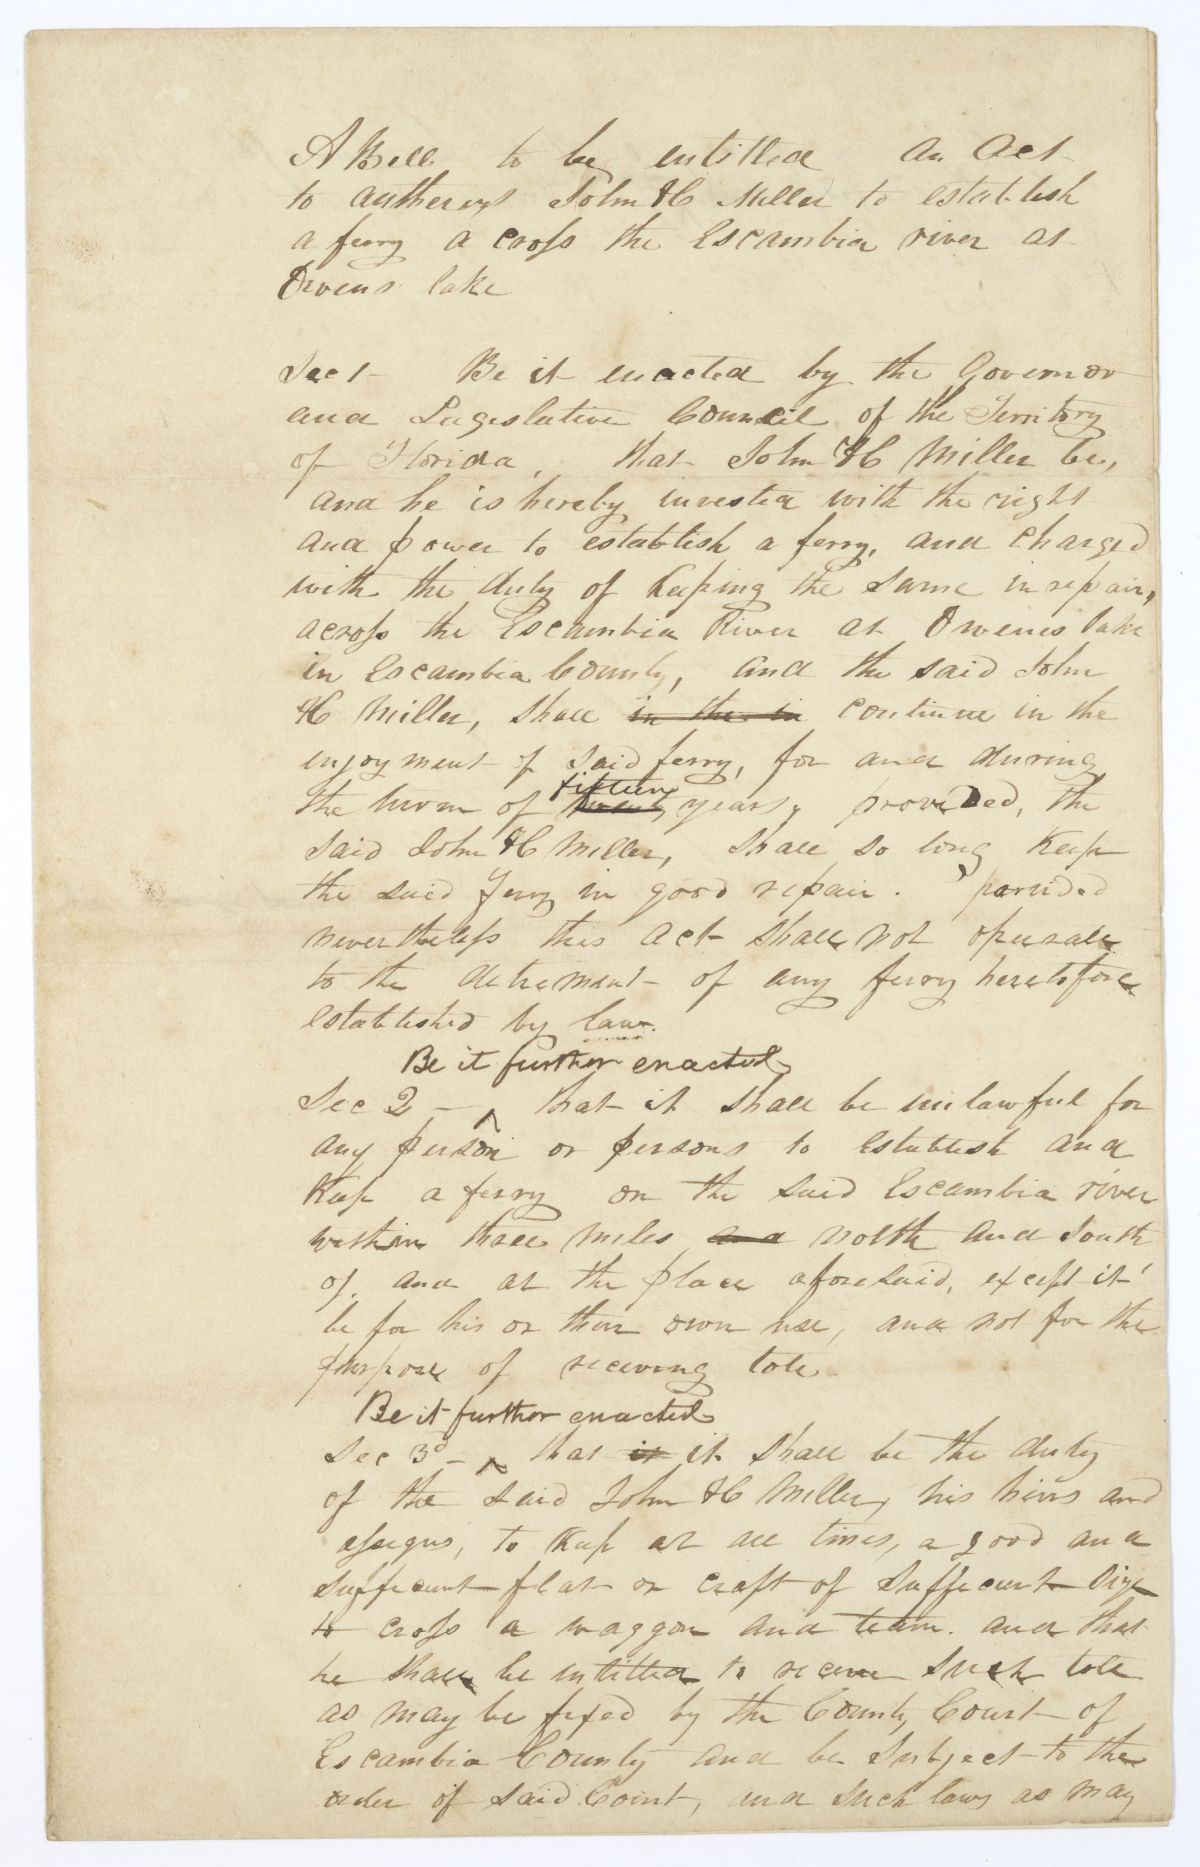 A Bill to be entitled An Act
to autherize John H C Miller to establish
a ferry a cross the Escambia river at
Owens lake
Sec 1 Be it enacted by the Governor
and Legislative Council of the Territory
of Florida, that John H C Miller be,
and he is hereby invested with the right
and power to establish a ferry, and charged
with the duty of keeping the same in repair,
across the Escambia River at Owens lake
in Escambia County, and the said John
H C Miller, shall in the in continue in the
enjoyment of said ferry, for and during
fifteen
the term of twenty years, provided, the
said John H C Miller, shall so long keep
the said ferry in good repair. provided
nevertheless this act shall not operate
to the detrement of any ferry heretofore
established by law.
Be it further enacted
Sec 2 - ^ that it shall be unlawful for
any person or persons to establish and
keep a ferry on the said Escambia river
within three miles and north and south
of, and at the place aforesaid, except it
be for his or their own use, and not for the
purpose of receiving tole
Be it further enacted
Sec 3d - ^ that is it shall be the duty
of the said John H C Miller, his heirs and
assigns, to keep at all times, a good and
sufficient flat or craft of sufficient size
to cross a waggon and team. and that
he shall be entitled to receive such tole
as may be fixed by the County Court of
Escambia County and be subject to the
order of said Court, and such laws as may